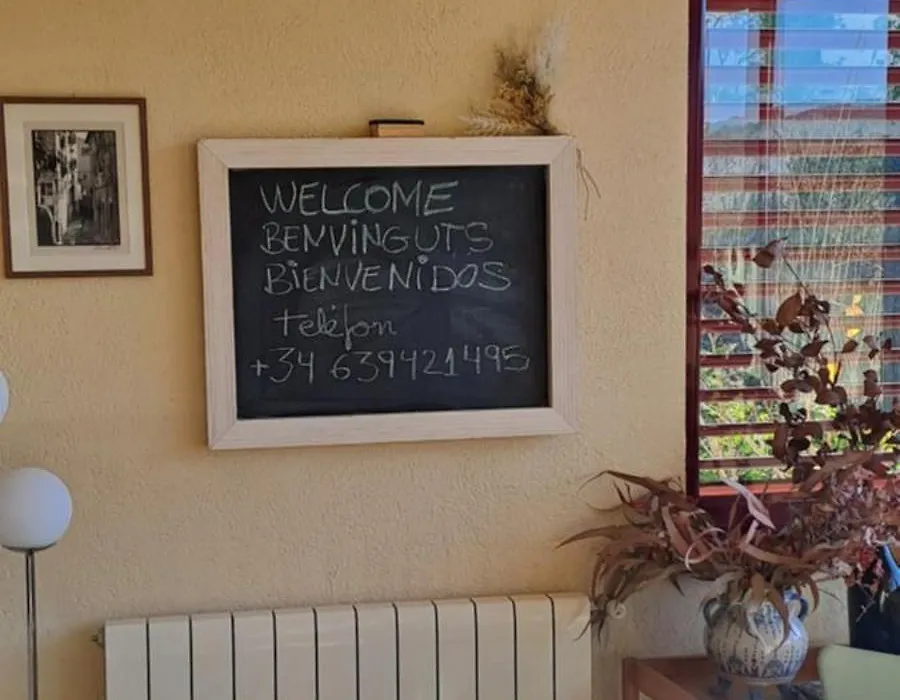 WELCOME
BENVINGUTS
BIENVENIDOS
telèfon
+34 639421495